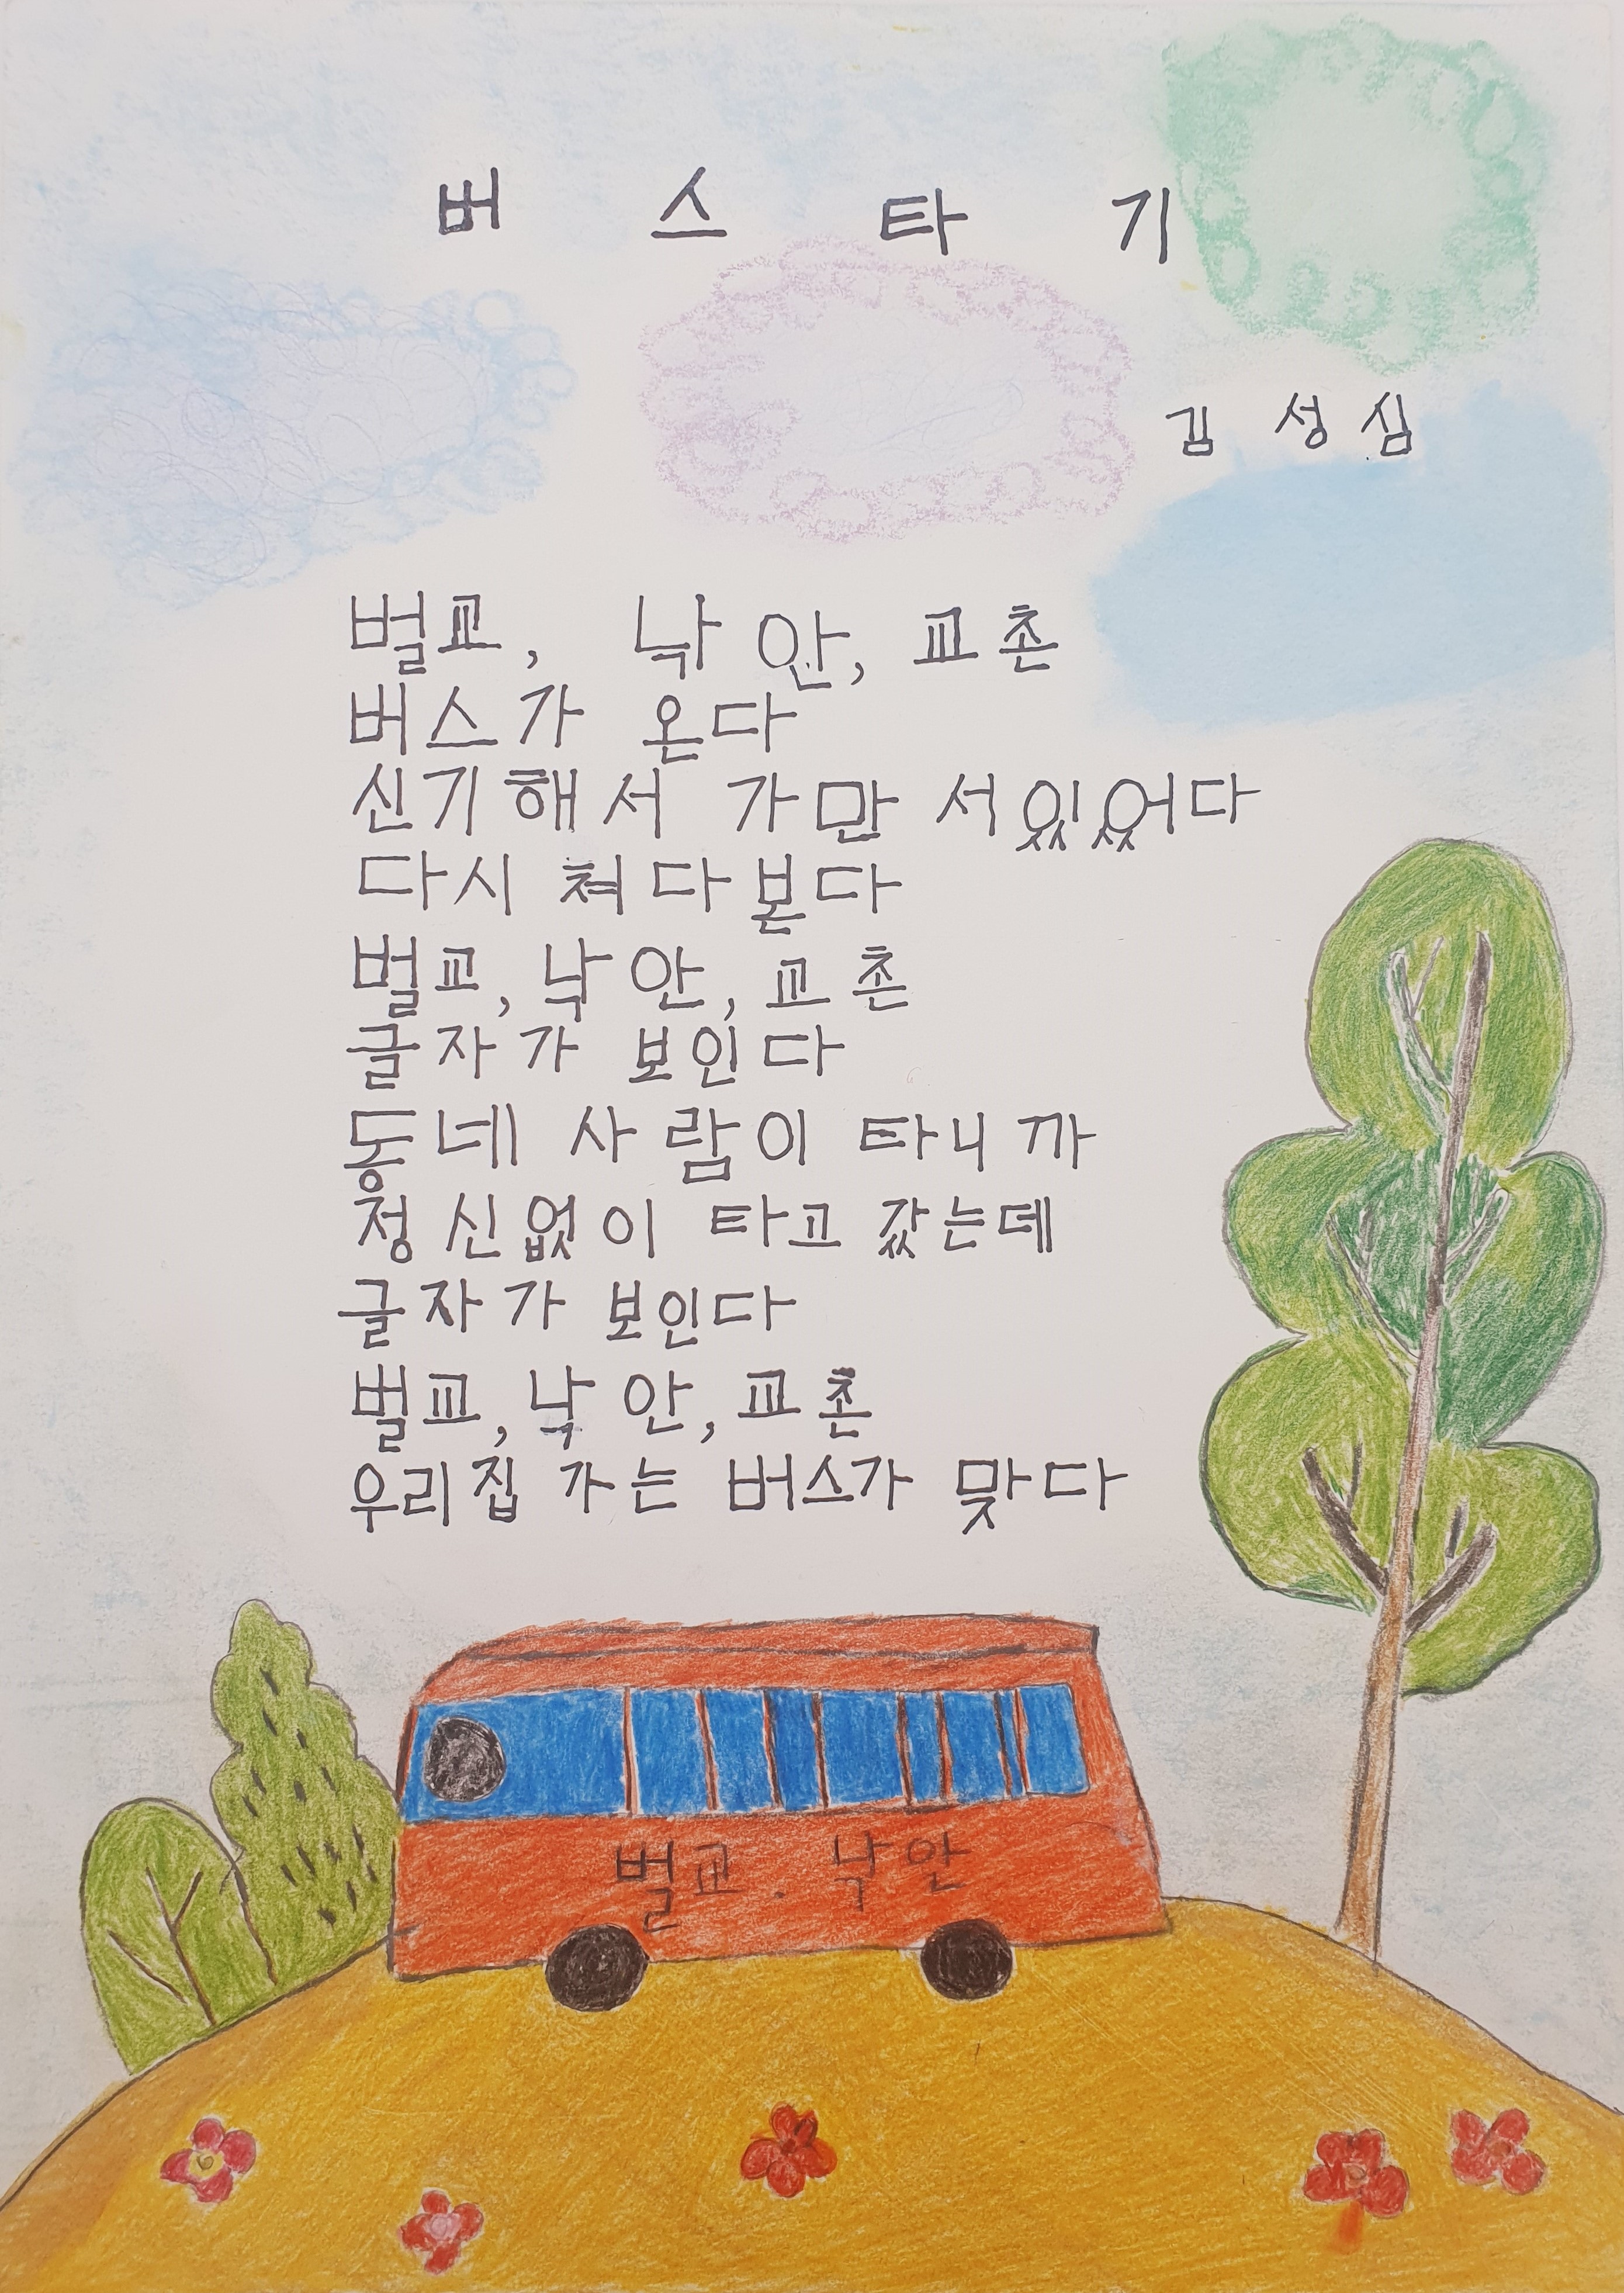 버 스 타 기
김 성 심
벌교, 낙 안, 교촌
버스가 온다
신기해서 가만 서있었다
다시 쳐다본다
벌교, 낙 안, 교촌
글자가 보인다
동네 사람이 타니까
정신없이 타고 갔는데
글자가 보인다
벌교, 낙 안, 교촌
우리집 가는 버스가 맞다
벌교 . 낙안